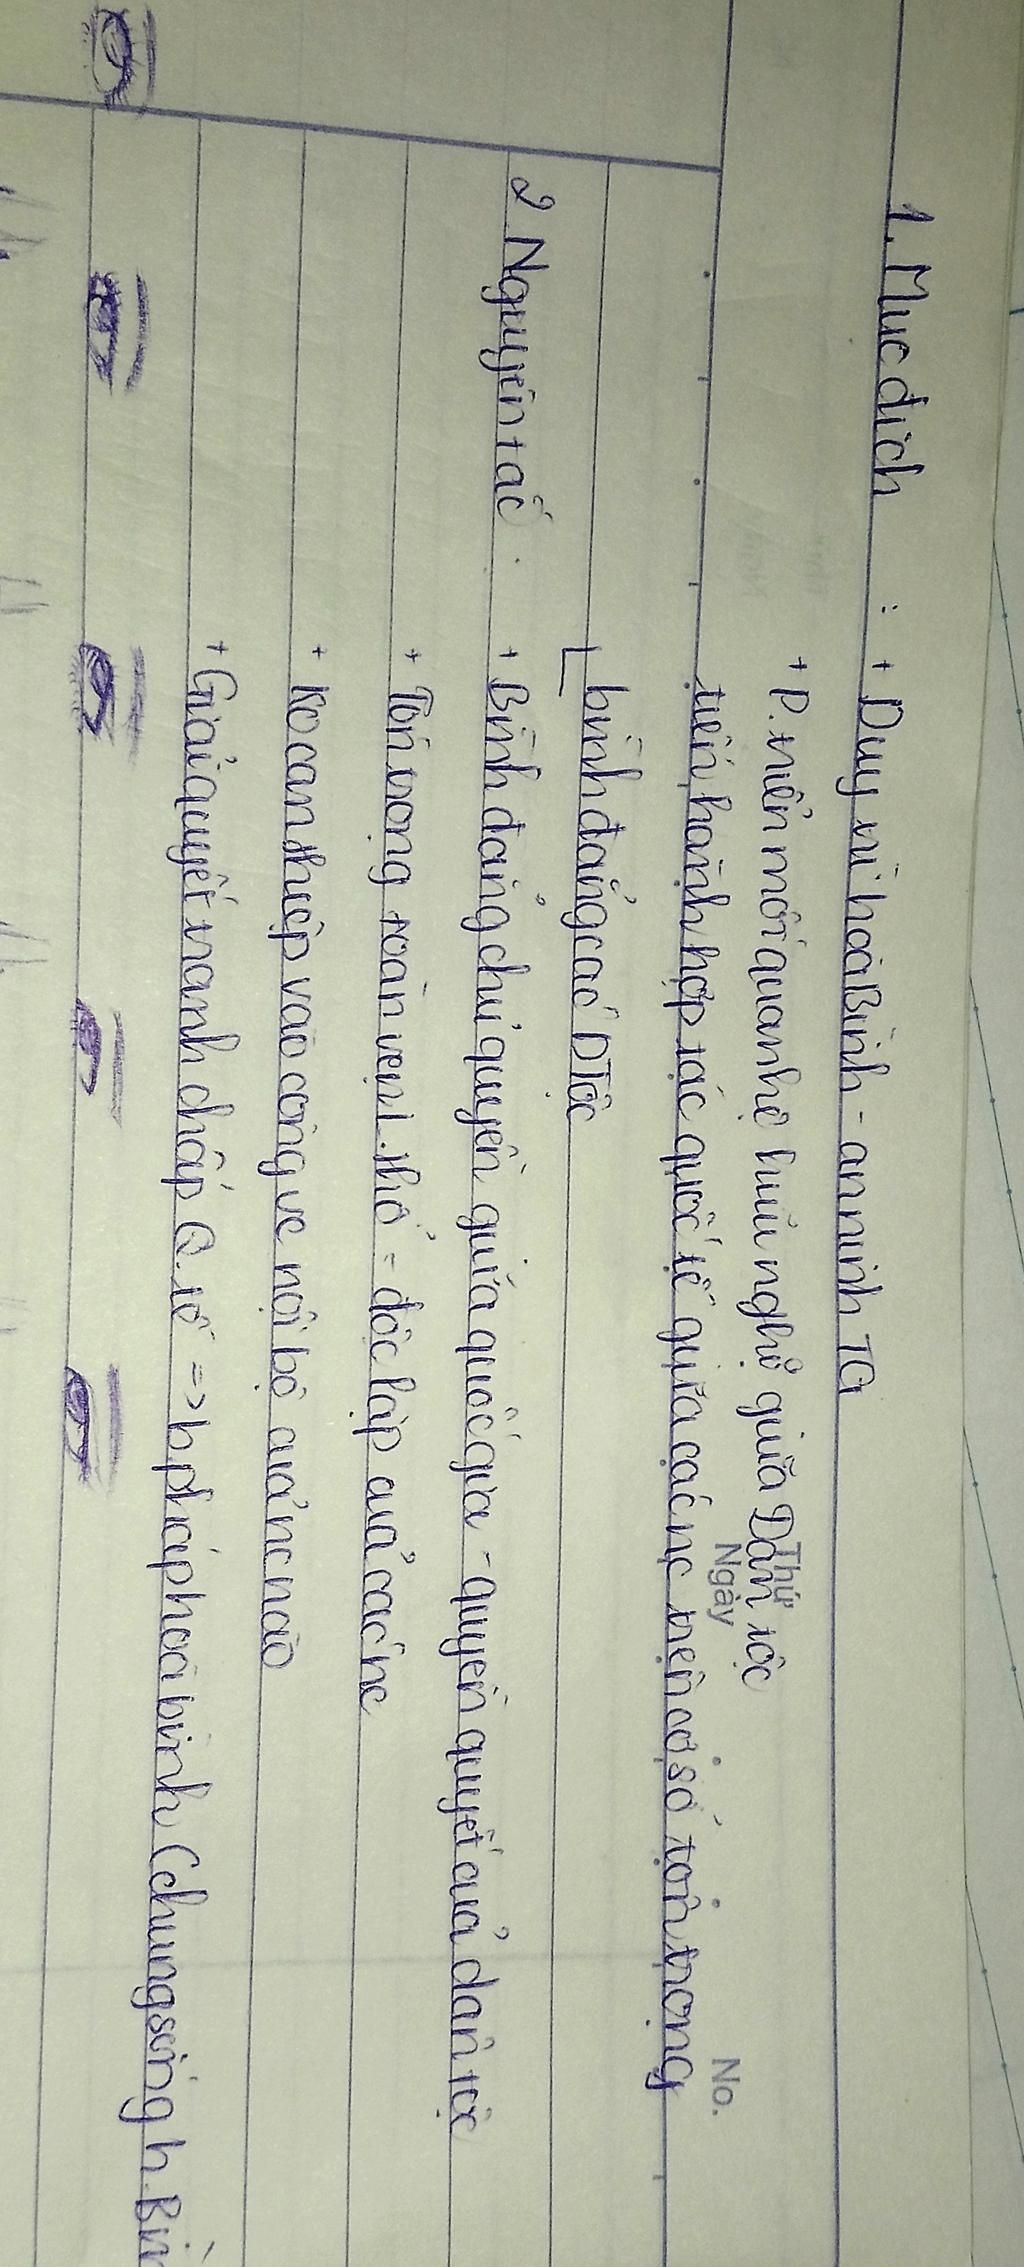 Thứ
Ngày
No.
1. Mục đích : + Duy trì hoà Bình - an ninh TG
+ P. triển mối quan hệ hữu nghị giữa Dân tộc
tiến hành hợp tác quốc tế giữa các nc trên cơ sở tôn trọng
bình đẳng các DTộc
2 Nguyên tắc : + Bình đẳng chủ quyền giữa quốc gia - quyền quyết của dân tộc
+ Tôn trọng toàn vẹn l.thổ - độc lập của các nc
+ Ko can thiệp vào công vc nội bộ của nc nào
+ Giải quyết tranh chấp Q.tế => b.pháp hoà bình (chung sống h.Bìn